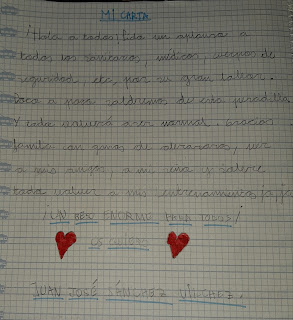 MI CARTA
¡Hola a todos! Pido un aplauso a
todos los sanitarios, médicos, cuerpos de
seguridad, etc, por su gran labor.
Poco a poco saldremos de esta pesadilla
Y todo volverá a ser normal. Gracias
familia con ganas de abrazaros, ver
a mis amigos, a mi seña y sobre
todo volver a mis entrenamientos ja, ja
¡UN BESO ENORME PARA TODOS!
OS QUIERO
JUAN JOSÉ SÁNCHEZ VÍLCHEZ.